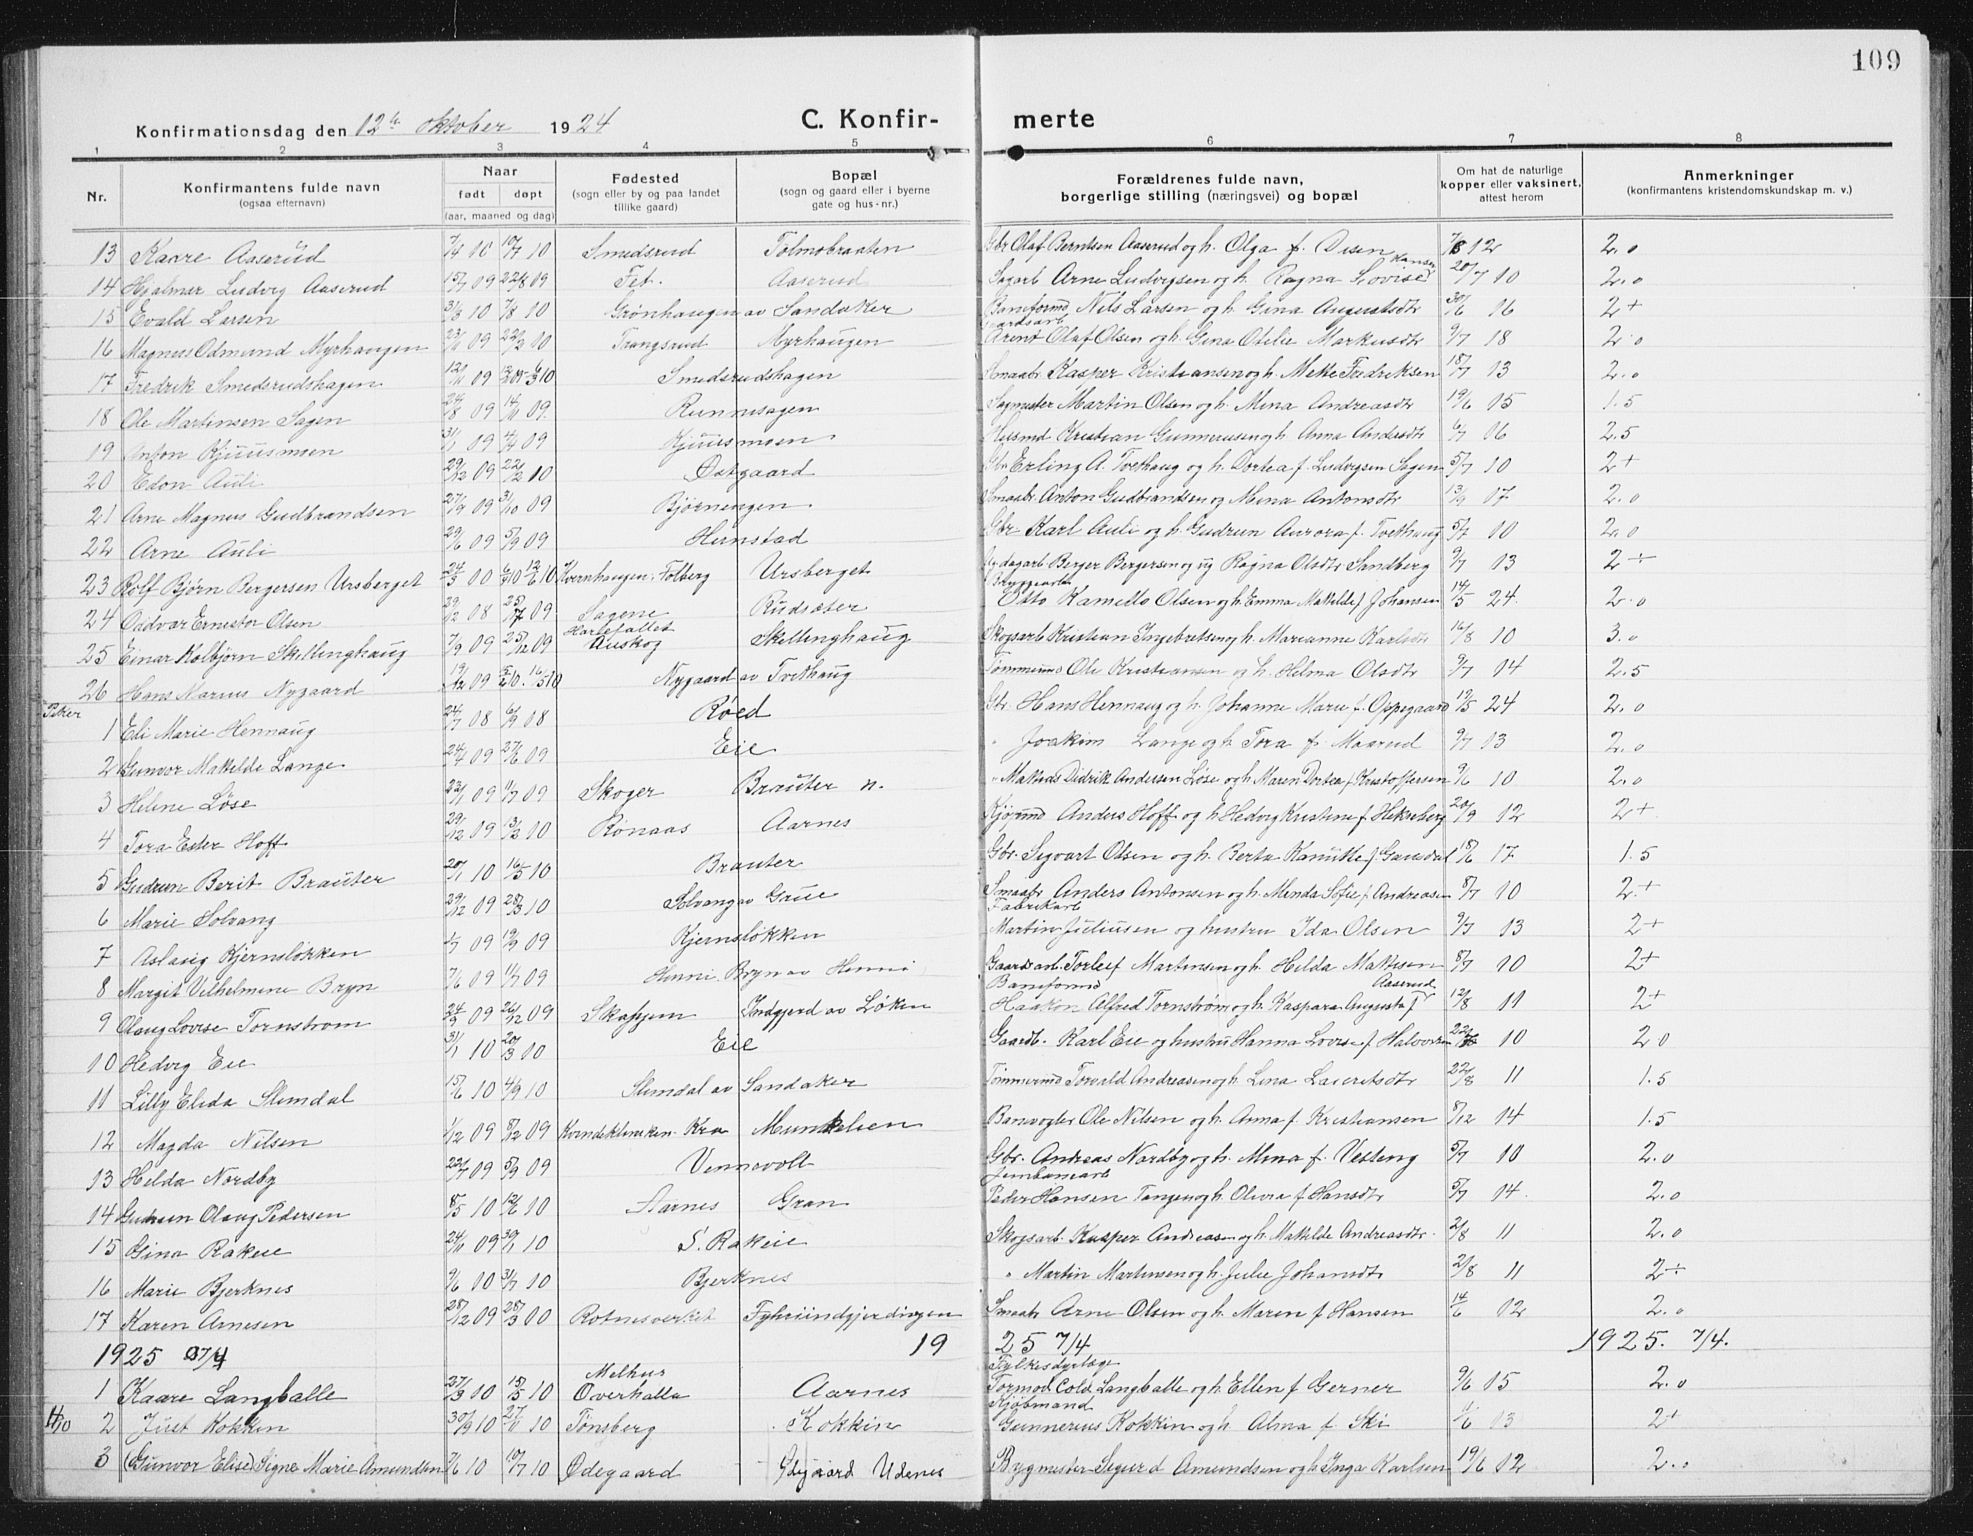 109
Konfirmationsdag den 12te oktober 1924 C. Konfir- merte
1 2 3 4 5 6 7 8
Nr. Konfirmantens fulde navn (ogsaa efternavn) Naar født døpt (aar, maaned og dag) Fødested (sogn eller by og paa landet tillike gaard) Bopæl (sogn og gaard eller i byerne gate og hus-nr.) Forældrenes fulde navn, borgerlige stilling (næringsvei) og bopæl Om hat de naturlige kopper eller vaksinert, attest herom Anmerkninger (konfirmantens kristendomskundskap m. v.)
13 Kaare Aaserud 7/4 10 10/7 10 Smedsrud Tolmobraaten Gbr Olaf Berntsen Aaserud og h. Olga f. Disen 7/8 12 2.0
14 Hjalmar Ludvig Aaserud 15/7 09 22/8 09 Fet. Aaserud Sagarb Arne Ludvigsen og h. Ragna Lovise Hansen 20/7 10 2.0
15 Evald Larsen 3/3 10 7/8 10 Grønhaugen av Sandaker Baneformd Nils Larsen og h. Gina Augustsdtr 30/6 16 2+
16 Magnus Odmund Myrhaugen 09 22/2 10 Trangsrud Myrhaugen Gaardsarb Arent Olaf Olsen og h. Gina Otelie Markusdtr 9/7 18 2.0
17 Fredrik Smedsrudshagen 12/11 09 Smedsrudshagen Smaabr. Kasper Kristiansen og h. Mette Fredriksen 18/7 13 2.0
18 Ole Martinsen Sagen 24/8 09 14/11 09 Runnisagen Sagmester Martin Olsen og h. Mina Andreasdtr 19/6 05 1.5
19 Anton Kjuusmoen 31/1 09 4/4 09 Kjuusmoen Husmd Kristian Gunnerusen og h. Anna Andersdtr 6/7 06 2.5
20 Edon Auli 29/12 09 22/2 10 Østgaard Gbr Erling A. Tvethaug og h. Dortea f. Ludvigsen Sagen 5/7 10 2+
21 Arne Magnus Gudbrandsen 27/9 09 31/10 09 Bjørnengen Smaabr. Anton Gudbrandsen og Mina Antonsdtr 13/9 07 2.0
22 Arne Auli 29/6 09 5/9 09 Hernstad Gbr Karl Auli og h. Gudrun Aurora f. Tvethaug 5/7 10 2.0
23 Rolf Bjørn Bergersen Ursberget 24/3 00 6/3 10 12/6 10 Kvernhaugen, Tolberg Ursberget Dagarb Berger Bergersen og Ragna Olsdtr Sandberg 9/7 03 2÷
24 Oddvar Ernestor Olsen 29/12 08 25/7 09 Sagene Rudsæter Bryggearb Otto Kamello Olsen og h. Emma Matelde f Johansen 14/5 24 2.0
25 Einar Kolbjørn Skillinghaug 7/9 09 25/12 09 Hartefallet Auskog Skillinghaug Skogsarb Kristian Ingebretsen og h. Marianne Karlsdtr 16/8 10 3.0
26 Hans Marius Nygaard 19/12 09 5/2 10. 16/5 10 Nygaard av Tvethaug Tømmermd Ole Kristiansen og h. Helma Olsdtr 9/7 04 2.5
Piker
1 Eli Marie Hennaug 24/7 08 6/9 08 Røed Gbr. Hans Hennaug og h. Johanne Marie f. Oppegaard 12/5 24 2.0
2 Gunvor Matelde Lange 24/4 09 27/6 09 Eie " Joakim Lange og h. Tora f. Maarud 9/7 13 2.0
3 Helene Løse 22/1 09 1/7 09 Skoger Brauter n. " Mathias Didrik Andersen Løse og h Maren Dortea f Kristoffersen 9/6 10 2.0
4 Tora Ester Hoff 29/12 09 13/2 10 Rønaas Aarnes Kjøpmd Anders Hoff og h Hedvig Kristine f Hekseberg 20/9 12 2+
5 Gudrun Berit Brauter 20/1 10 16/5 10 Brauter Gbr. Sigvart Olsen og h. Berta Kamitte f. Gansdal 18/6 17 1.5
6 Marie Solvang 29/12 09 28/3 10 Solvang av Grue Smaabr Anders Antonsen og h. Menda Sofie f. Andreasen 8/7 10 2.+
7 Aslaug Kjernsløkken 2/7 09 19/9 09 Kjernsløkken Fabrikarb Martin Juliusen og hustru Ida Olsen 9/7 13 2+
8 Margit Vilhelmine Bryn 7/6 09 1/7 09 Henni Bryn av Henni Gaardsarb. Torleif Martinsen og h. Hilda Matisen 8/7 10 2+
9 Olaug Lovise Tornstrøm 24/5 09 26/12 09 Skappern Indgjerd av Løken Baneformd Haakon Alfred Tornstrøm og h. Kaspara Augusta f Aaserud 12/8 11 2+
10 Hedvig Eie 31/1 10 20/3 10 Eie Gaardb. Karl Eie og hustru Hanna Lovise f. Halvorsen 10 2.0
11 Lilly Elida Slemdal 15/6 10 4/9 10 Slemdal av Sandaker Tømmermd Torvald Andreasen og h. Lina Lauritsdtr 22/8 11 1.5
12 Magda Nilsen 1/12 09 8/12 09 Kvindeklinikken. Kra Munkelien Banevogter Ole Nilsen og h. Anna f. Kristiansen 8/12 14 1.5
13 Helda Nordby 22/7 09 5/9 09 Vennevoll Gbr. Andreas Nordby og h. Mina f. Vesteng 5/7 10 2.0
14 Gudrun Olaug Pedersen 8/5 10 12/6 10 Aarnes Gran Jernbanearb Peder Hansen Tangen og h. Olivia f Hansdtr 5/7 14. 2.0
15 Gina Rakeie 24/11 09 30/1 10 S. Rakeie Skogsarb. Kasper Andreasen og h. Matilde Andreasdtr. 2/8 11 2.0
16 Marie Bjerknes 9/6 10 31/7 10 Bjerknes " Martin Martinsen og h. Julie Johansdtr 2/8 11 2÷
17 Karen Arnesen 28/12 09 28/3 00 Rotnesverket Fyhriindgjerdingen Smaabr Arne Olsen og h. Maren f Hansen 14/6 02 2.0
1925 7/4 19 25 7/4 1925. 7/4.
1 Kaare Langballe 27/3 10 15/5 10 Melhus Overhalla Aarnes Fylkesdyrlæge Tormod Cold Langballe og h. Ellen f Gerner 9/6 15 2.0
11/10 2 Just Kokkin 30/9 10 27/11 10 Tønsberg Kokkin Kjøbmand Gunnerius Kokkin og h. Alma f. Ski 1/6 13 2+
3 (Gunvor Elise) Signe Marie Amundsen 7/6 10 10/7 10 Ødegaard Ødegaard Udenes Bygmester Sigurd Amundsen og h Inga Karlsen 19/6 12 2.0